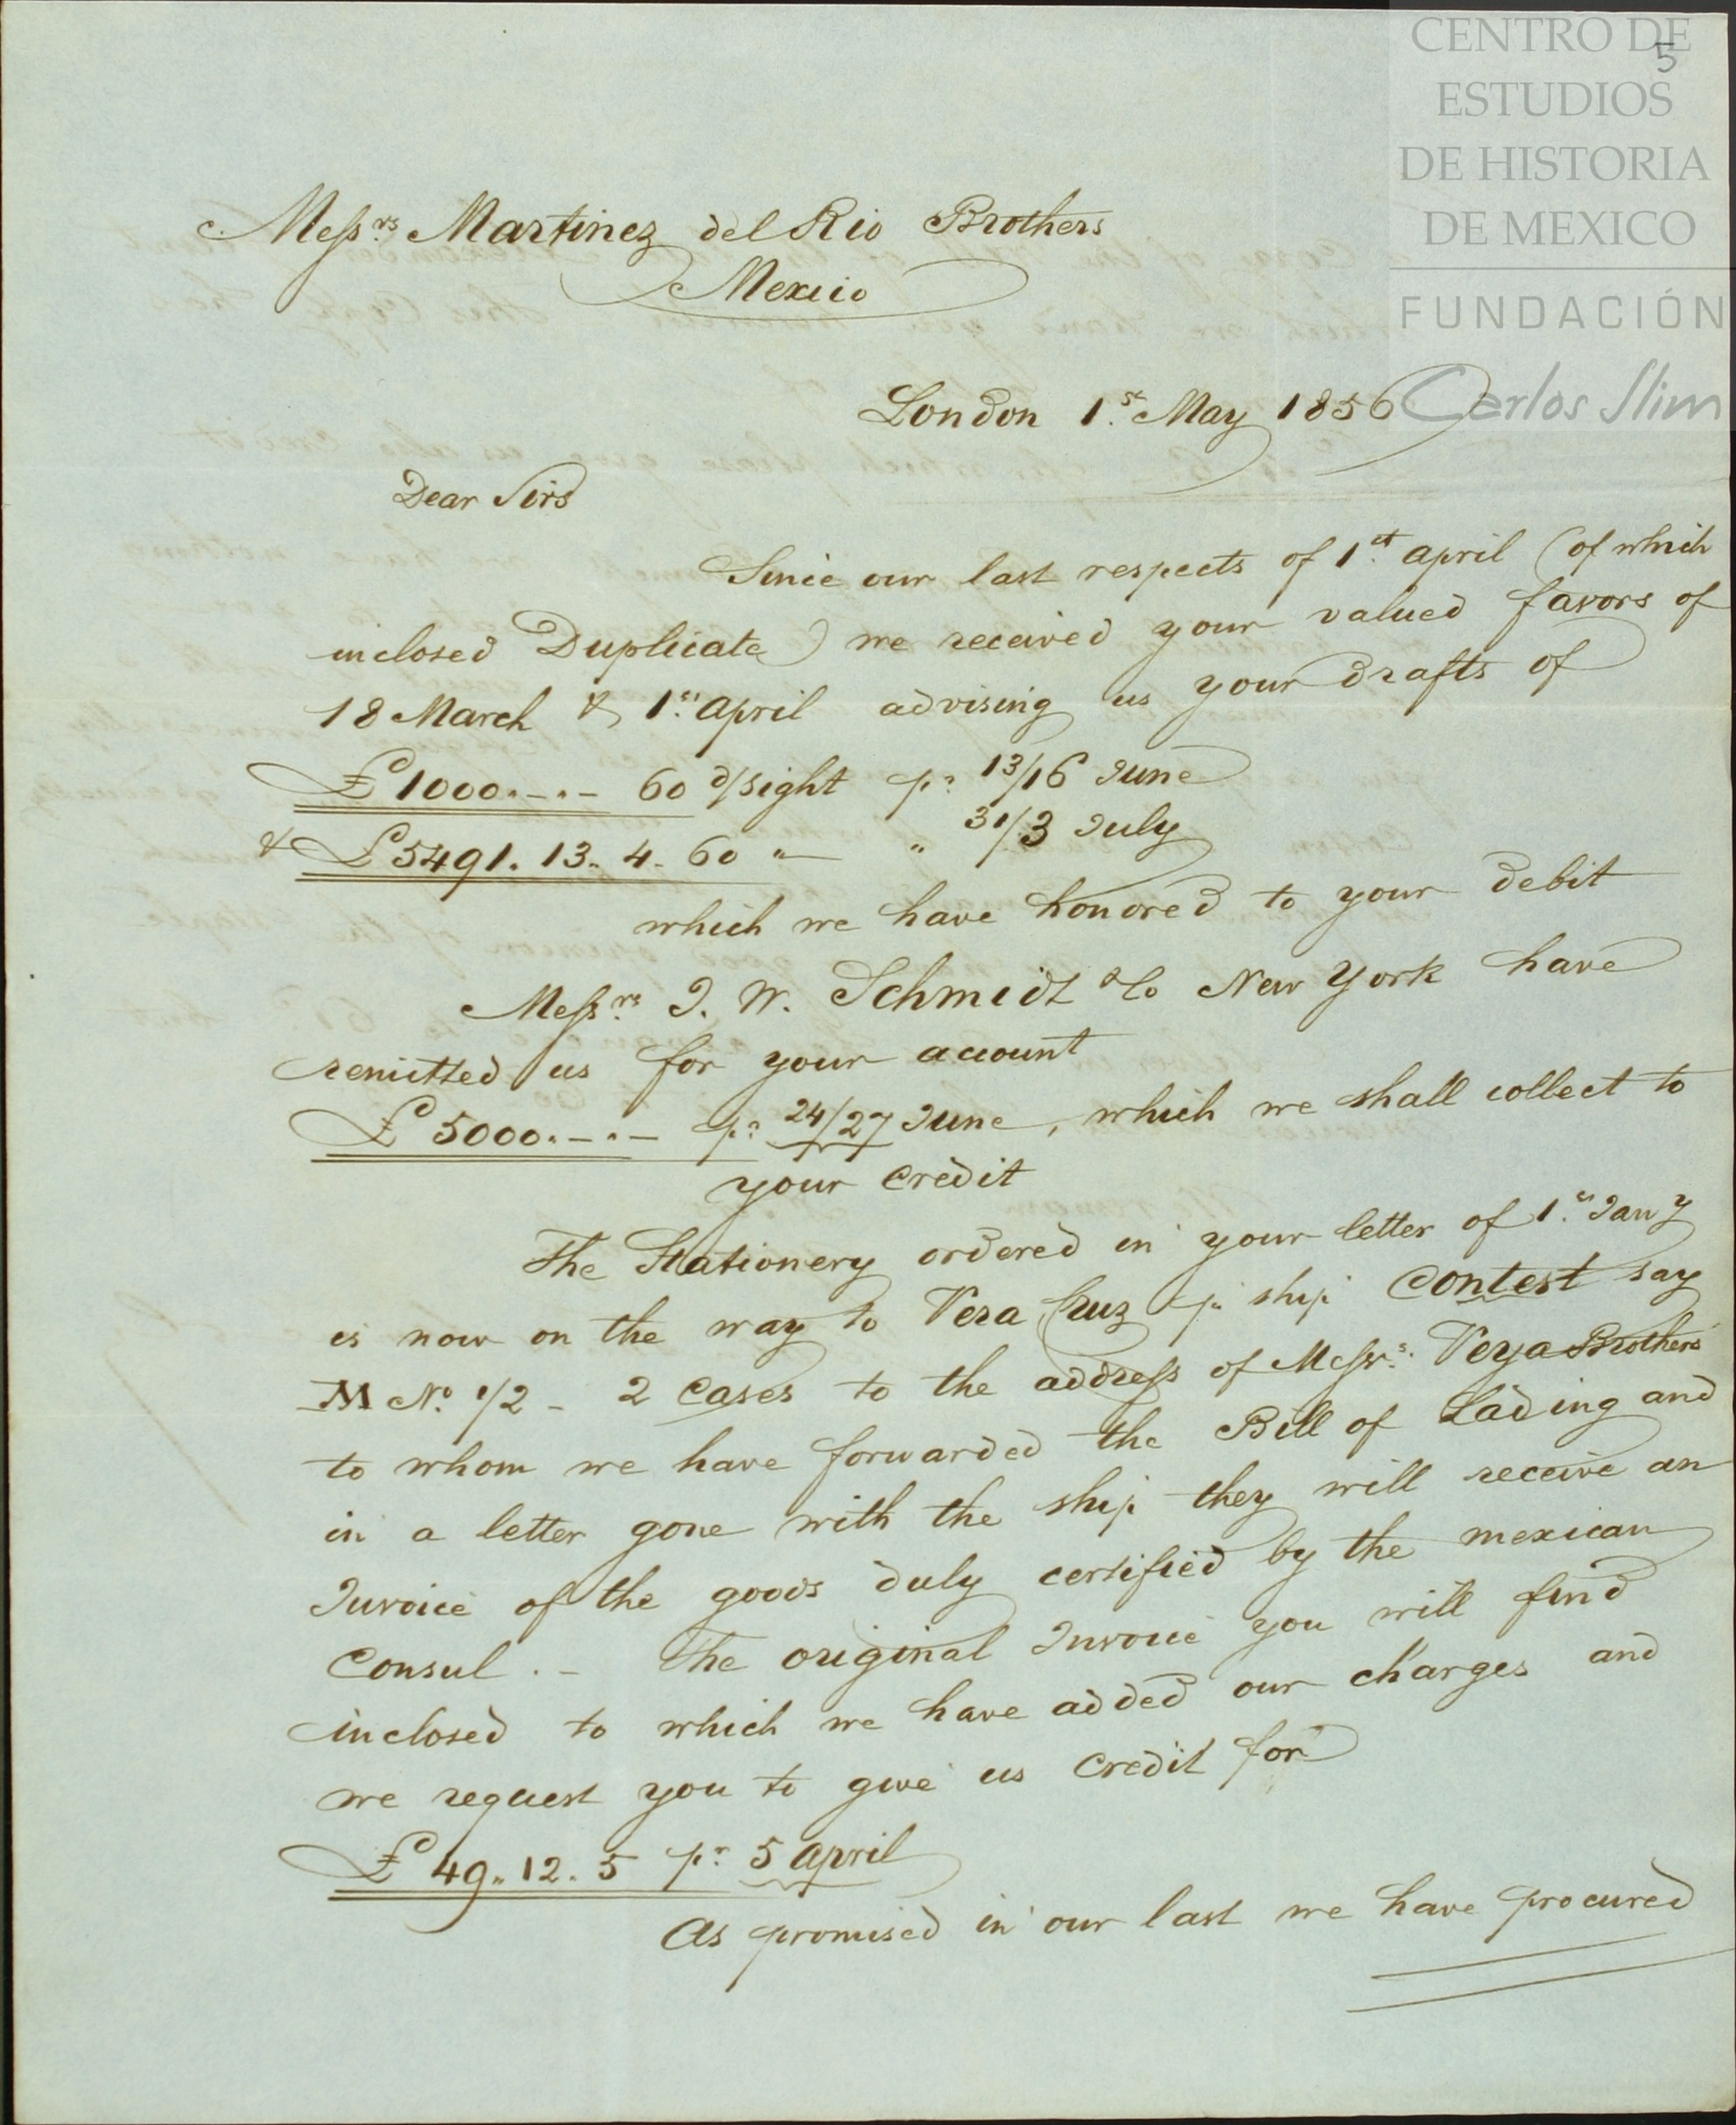 CENTRO DE
5
ESTUDIOS
DE HISTORIA
DE MEXICO
FUNDACIÓN
Carlos Slim
Messrs Martinez del Rio Brothers
Mexico
London 1st May 1856
Dear Sirs
Since our last respects of 1st April (of which
inclosed Duplicate) we received your valued favors of
18 March & 1st April advising us your drafts of
£1000.-.- 60 d/sight pr 13/16 June
& £5491.13.4. 60 " " 31/3 July
which we have honored to your debit
Messrs J. W. Schmidt & Co New York have
remitted us for your account
£5000.-.- pr 24/27 June, which we shall collect to
your credit
The Stationery ordered in your letter of 1st Jany
is now on the way to Vera Cruz pr ship Contest say
M No. 1/2 - 2 cases to the address of Messrs. Veya Brothers
to whom we have forwarded the Bill of Lading and
in a letter gone with the ship they will receive an
Invoice of the goods duly certified by the mexican
Consul. - The original Invoice you will find
inclosed to which we have added our charges and
we request you to give us credit for
£49.12.5 pr 5 April
As promised in our last we have procured